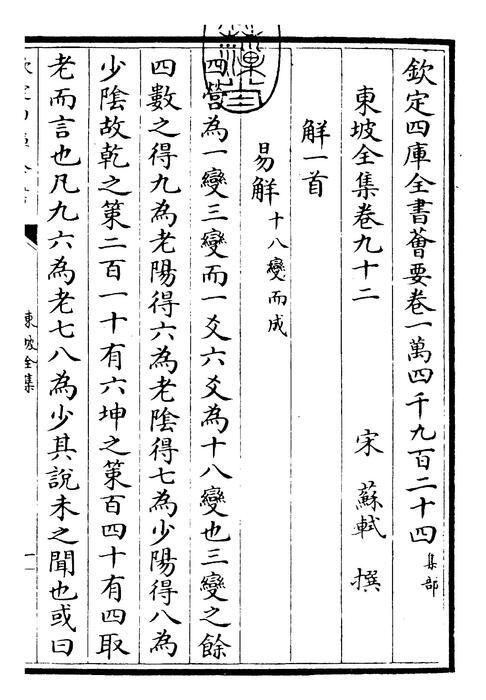 欽定四庫全書薈要卷一萬四千九百二十四集部
東坡全集卷九十二
宋 蘇軾 撰
解一首
易解十八變而成
四營為一變三變而一爻六爻為十八變也三變之餘
四數之得九為老陽得六為老陰得七為少陽得八為
少陰故乾之策二百一十有六坤之策百四十有四取
老而言也凡九六為老七八為少其說未之聞也或曰
東坡全集
一